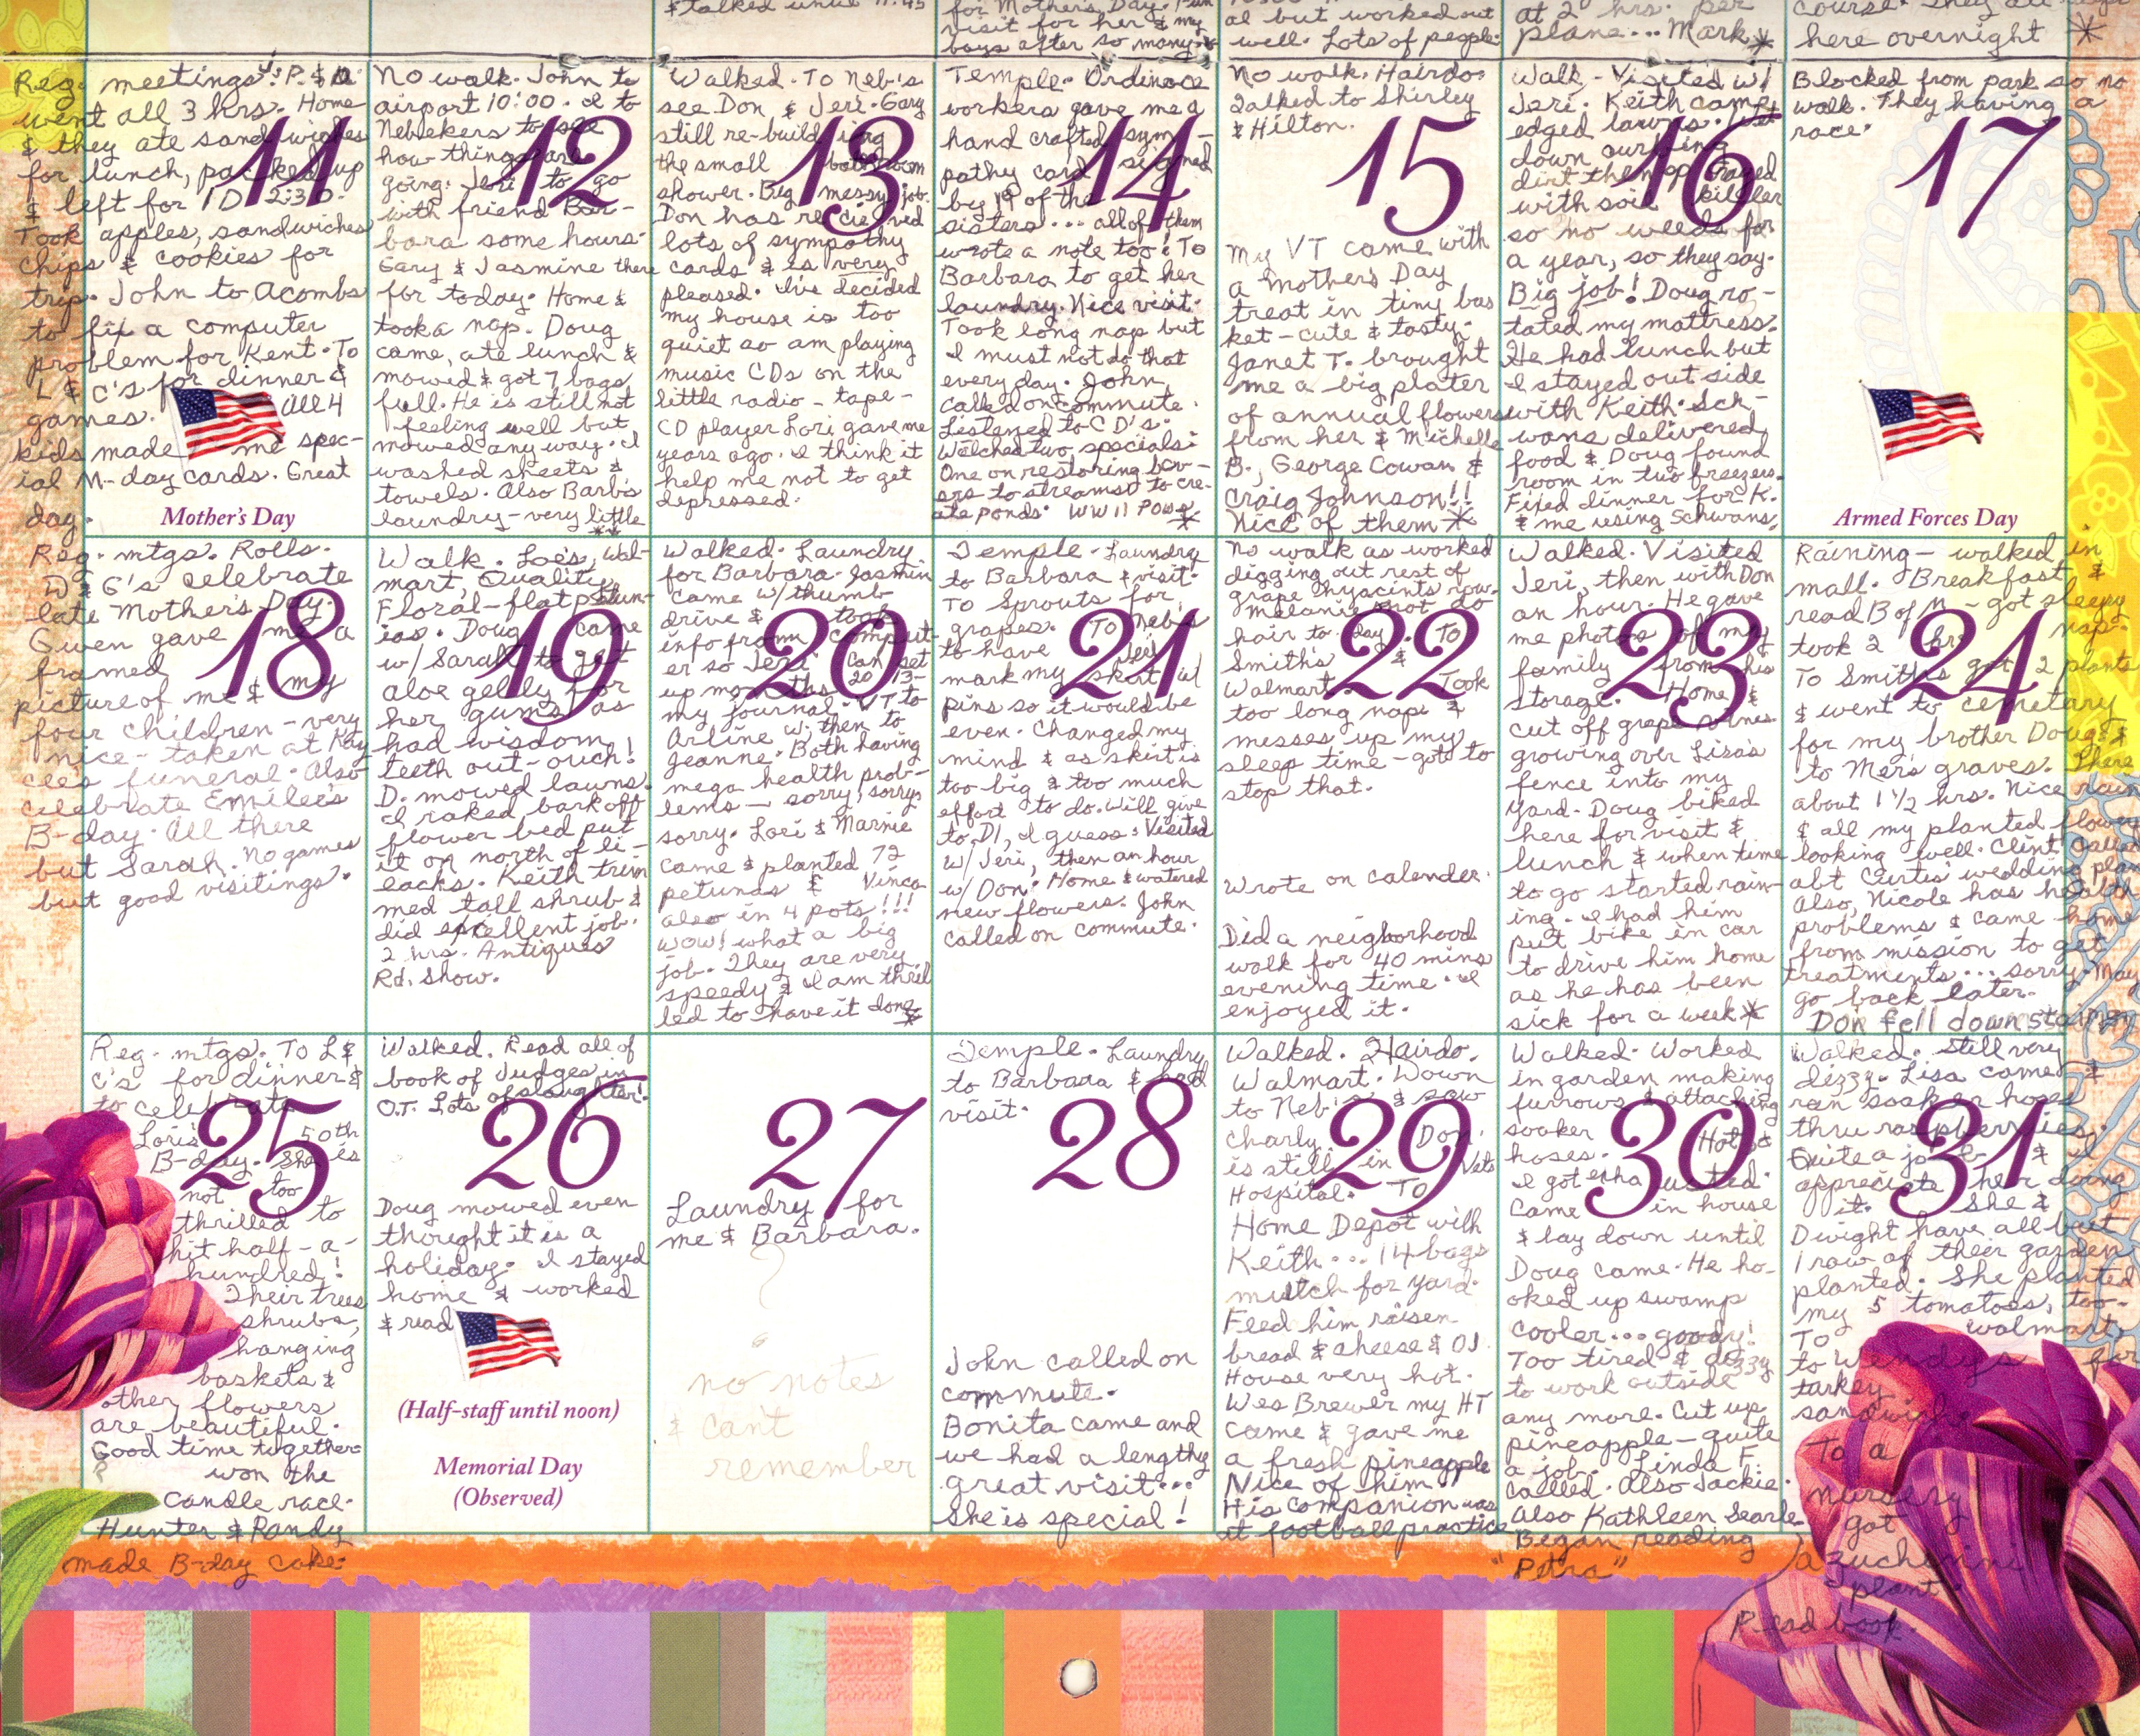 & talked until 11:45
for Mother's Day. Fun
visit for her & my
boys after so many
al but worked out
well. Lots of people.
at 2 hrs. per
plane... Mark *
course. They all
here overnight *
Reg. meetings. P. & D.
went all 3 hrs. Home
& they ate sandwiches
for lunch, packed up
& left for ID 2:30.
Took apples, sandwiches
chips & cookies for
trip. John to Acombs
to fix a computer
problem for Kent. To
L & C's for dinner &
games. All 4
kids made me spec-
ial M-day cards. Great
day.
11
Mother's Day
No walk. John to
airport 10:00. I to
Nebekers to see
how things are
going. Jeri to go
with friend Bar-
bara some hours.
Gary & Jasmine there
for today. Home &
took a nap. Doug
came, ate lunch &
mowed & got 7 bags
full. He is still not
feeling well but
mowed any way. I
washed sheets &
towels. Also Barb's
laundry - very little
**
12
Walked. To Neb's
see Don & Jeri. Gary
still re-building
the small bathroom
shower. Big messy job.
Don has recieved
lots of sympathy
cards & is very
pleased. I've decided
my house is too
quiet so am playing
music CDs on the
little radio - tape -
CD player Lori gave me
years ago. I think it
help me not to get
depressed.
13
Temple. Ordinace
workers gave me a
hand crafted sym-
pathy card signed
by 19 of the
sisters... all of them
wrote a note too! To
Barbara to get her
laundry. Nice visit.
Took long nap but
I must not do that
every day. John
called on commute.
Listened to CD's.
Watched two specials.
One on restoring beav-
ers to streams to cre-
ate ponds. WW II POWs
*
14
No walk. Hairdo.
Talked to Shirley
& Hilton.
15
My VT came with
a Mother's Day
treat in tiny bas
ket - cute & tasty.
Janet T. brought
me a big plater
of annual flowers
from her & Michelle
B., George Cowan &
Craig Johnson!!
Nice of them *
Walk - Visited w/
Jeri. Keith came &
edged lawns. Wet
down curbing
dirt then sprayed
with soil killer
so no weeds for
a year, so they say.
Big job! Doug ro-
tated my mattress.
He had lunch but
I stayed out side
with Keith. Sch-
wans delivered
food & Doug found
room in two freezers.
Fixed dinner for K.
& me using Schwans.
16
Blocked from park so no
walk. They having a
race.
17
Armed Forces Day
Reg. mtgs. Rolls.
D & G's celebrate
late Mother's Day.
Gwen gave me a
framed
picture of me & my
four children - very
nice - taken at Kay
cee's funeral. Also
celebrate Emilee's
B-day. All there
but Sarah. No games
but good visitings.
18
Walk. Loe's, Wal-
mart, Quality
Floral - flat petun-
ias. Doug came
w/ Sarah to get
aloe gelly for
her gums as
had wisdom
teeth out - ouch!
D. mowed lawns.
I raked bark off
flower bed put
it on north of li-
lacks. Keith trim
med tall shrub &
did excellent job.
2 hrs. Antiques
Rd. Show.
19
Walked. Laundry
for Barbara. Jasmin
came w/ thumb
drive & took
info from comput-
er so Jeri can set
up months 2013-
my journal. VT to
Arline W. then to
Jeanne. Both having
mega health prob-
lems - sorry, sorry,
sorry. Lori & Marnie
came & planted 72
petunas & Vinca
also in 4 pots!!!
Wow! what a big
job. They are very
speedy & I am thril
led to have it done
*
20
Temple - Laundry
to Barbara & visit.
To Sprouts for
grapes. To Neb's
to have Jeri
mark my skirt w/
pins so it would be
even. Changed my
mind & as skirt is
too big & too much
effort to do. Will give
to DI, I guess. Visited
w/ Jeri, then an hour
w/ Don. Home & watered
new flowers. John
called on commute.
21
No walk as worked
digging out rest of
grape hyacints row.
Melanie not do
hair to day. To
Smith's &
Walmart. Took
too long nap &
messes up my
sleep time - gotto to
stop that.
22
Wrote on calender.
Did a neigborhood
walk for 40 mins
evening time. I
enjoyed it.
Walked. Visited
Jeri, then with Don
an hour. He gave
me photos of my
family from his
storage. Home &
cut off grape vines
growing over Lisa's
fence into my
yard. Doug biked
here for visit &
lunch & when time
to go started rain-
ing. I had him
put bike in car
to drive him home
as he has been
sick for a week *
23
Raining - walked in
mall. Breakfast &
read B of M - got sleepy
took 2 hr nap.
To Smith's got 2 plants
& went to cemetary
for my brother Doug &
to Mer's graves. There
about 1 1/2 hrs. Nice rain
& all my planted flowers
looking well. Clint called
abt Curtis' wedding plan
Also, Nicole has health
problems & came home
from mission to get
treatments... sorry. May
go back later.
Don fell down stairs
24
Reg. mtgs. To L &
C's for dinner &
to celebrate
Lori's 50th
B-day. She is
not too
thrilled to
hit half-a-
hundred!
Their trees
shrubs,
hanging
baskets &
other flowers
are beautiful.
Good time together.
? won the
candle race.
Hunter & Randy
made B-day cake.
25
Walked. Read all of
book of Judges in
O.T. Lots of slaughter!
26
Doug mowed even
thought it is a
holiday. I stayed
home & worked
& read
(Half-staff until noon)
Memorial Day
(Observed)
27
Laundry for
me & Barbara.
?
no notes
& can't
remember
Temple. Laundry
to Barbara & had
visit.
28
John called on
commute.
Bonita came and
we had a lengthy
great visit...
She is special!
Walked. Hairdo.
Walmart. Down
to Neb's & saw
Charly. Don
is still in Vets
Hospital. To
Home Depot with
Keith... 14 bags
mutch for yard.
Feed him raisen
bread & cheese & OJ.
House very hot.
Wes Brewer my HT
came & gave me
a fresh pineapple
Nice of him.
His companion was
at football practice
29
Walked. Worked
in garden making
furrows & attaching
soaker
hoses. Hot &
I got exhausted.
Came in house
& lay down until
Doug came. He ho-
oked up swamp
cooler... gooday!
Too tired & dizzy
to work outside
any more. Cut up
pineapple - quite
a job. Linda F.
called. Also Jackie.
Also Kathleen Searle.
Began reading
"Petra"
30
Walked. Still very
dizzy. Lisa came &
ran soaker hoses
thru raspberries.
Quite a job & I
appreciate her doing
it. She &
Dwight have all but
1 row of their garden
planted. She planted
my 5 tomatoes, too.
To Walmart.
to Wendy's for
turkey
sandwich.
To a
nursery
got
a zuchinni
plant.
Read book.
31